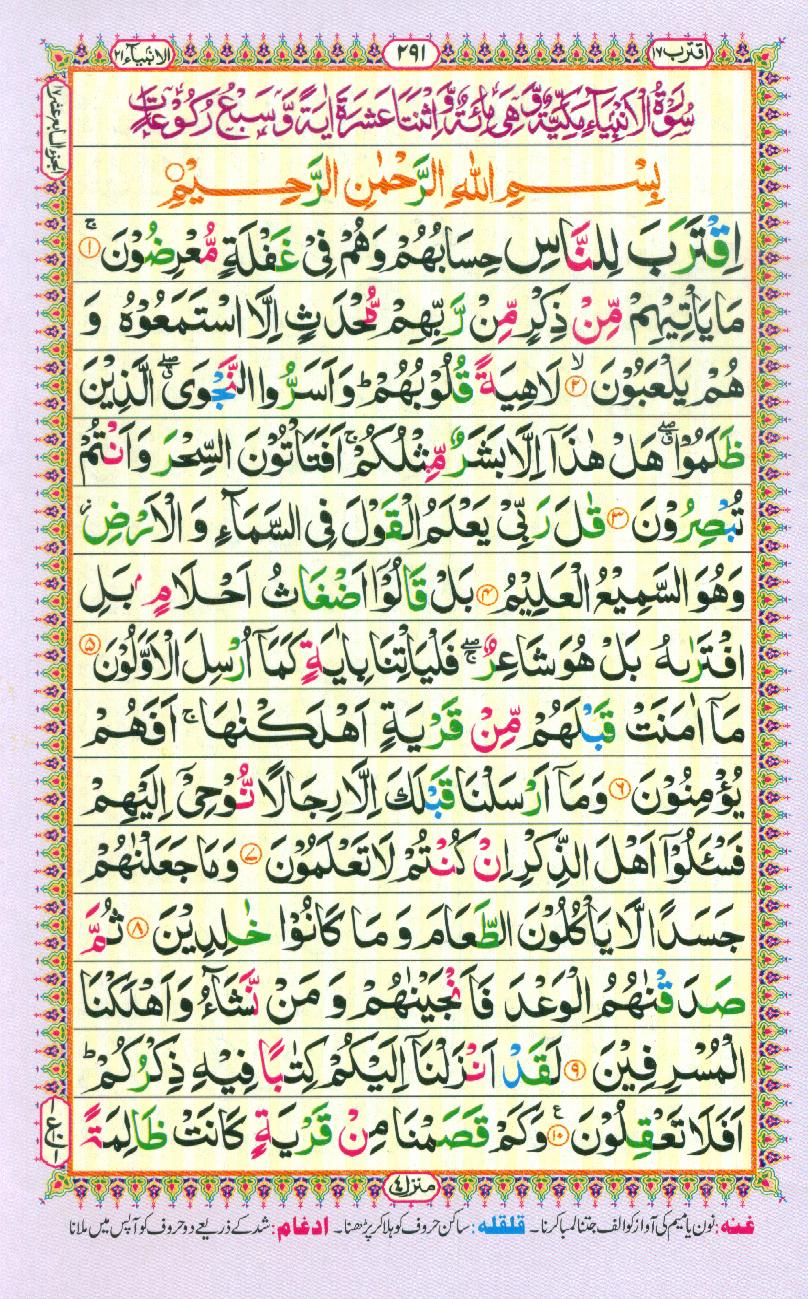 اقترب ١٧
٢٩١
الانبیآء ٢١
سُوْرَةُ الْاَنْۢبِیَآءِ مَکِّیَّةٌ وَّهِیَ مِائَةٌ وَّاثْنَتَا عَشَرَةَ اٰیَةً وَّسَبْعُ رُکُوْعَاتٍ
الجزء السابع عشر ١٧
بِسْمِ اللهِ الرَّحْمٰنِ الرَّحِیْمِ
اِقْتَرَبَ لِلنَّاسِ حِسَابُهُمْ وَهُمْ فِیْ غَفْلَةٍ مُّعْرِضُوْنَ ۚ ١
مَا یَاْتِیْهِمْ مِّنْ ذِکْرٍ مِّنْ رَّبِّهِمْ مُّحْدَثٍ اِلَّا اسْتَمَعُوْهُ وَ
هُمْ یَلْعَبُوْنَ ۙ ٢ لَاهِیَةً قُلُوْبُهُمْ ؕ وَاَسَرُّوا النَّجْوَی ۖۗ الَّذِیْنَ
ظَلَمُوْا ۖۗ هَلْ هٰذَاۤ اِلَّا بَشَرٌ مِّثْلُکُمْ ۚ اَفَتَاْتُوْنَ السِّحْرَ وَاَنْتُمْ
تُبْصِرُوْنَ ٣ قٰلَ رَبِّیْ یَعْلَمُ الْقَوْلَ فِی السَّمَآءِ وَ الْاَرْضِ ؗ
وَهُوَ السَّمِیْعُ الْعَلِیْمُ ٤ بَلْ قَالُوْۤا اَضْغَاثُ اَحْلَامٍۭ بَلِ
افْتَرٰىهُ بَلْ هُوَ شَاعِرٌ ۖۚ فَلْیَاْتِنَا بِاٰیَةٍ کَمَاۤ اُرْسِلَ الْاَوَّلُوْنَ ٥
مَاۤ اٰمَنَتْ قَبْلَهُمْ مِّنْ قَرْیَةٍ اَهْلَکْنٰهَا ۚ اَفَهُمْ
یُؤْمِنُوْنَ ٦ وَمَاۤ اَرْسَلْنَا قَبْلَکَ اِلَّا رِجَالًا نُّوْحِیْۤ اِلَیْهِمْ
فَسْـَٔلُوْۤا اَهْلَ الذِّکْرِ اِنْ کُنْتُمْ لَا تَعْلَمُوْنَ ٧ وَمَا جَعَلْنٰهُمْ
جَسَدًا لَّا یَاْکُلُوْنَ الطَّعَامَ وَ مَا کَانُوْا خٰلِدِیْنَ ٨ ثُمَّ
صَدَقْنٰهُمُ الْوَعْدَ فَاَنْجَیْنٰهُمْ وَ مَنْ نَّشَآءُ وَاَهْلَکْنَا
الْمُسْرِفِیْنَ ٩ لَقَدْ اَنْزَلْنَاۤ اِلَیْکُمْ کِتٰبًا فِیْهِ ذِکْرُکُمْ ؕ
اَفَلَا تَعْقِلُوْنَ ١٠ ع وَکَمْ قَصَمْنَا مِنْ قَرْیَةٍ کَانَتْ ظَالِمَةً
منزل ٤
غنه: نون یا میم کی آواز کو الف جتنا لمبا کرنا۔ قلقله: ساکن حروف کو ہلا کر پڑھنا۔ ادغام: شد کے ذریعے دو حروف کو آپس میں ملانا